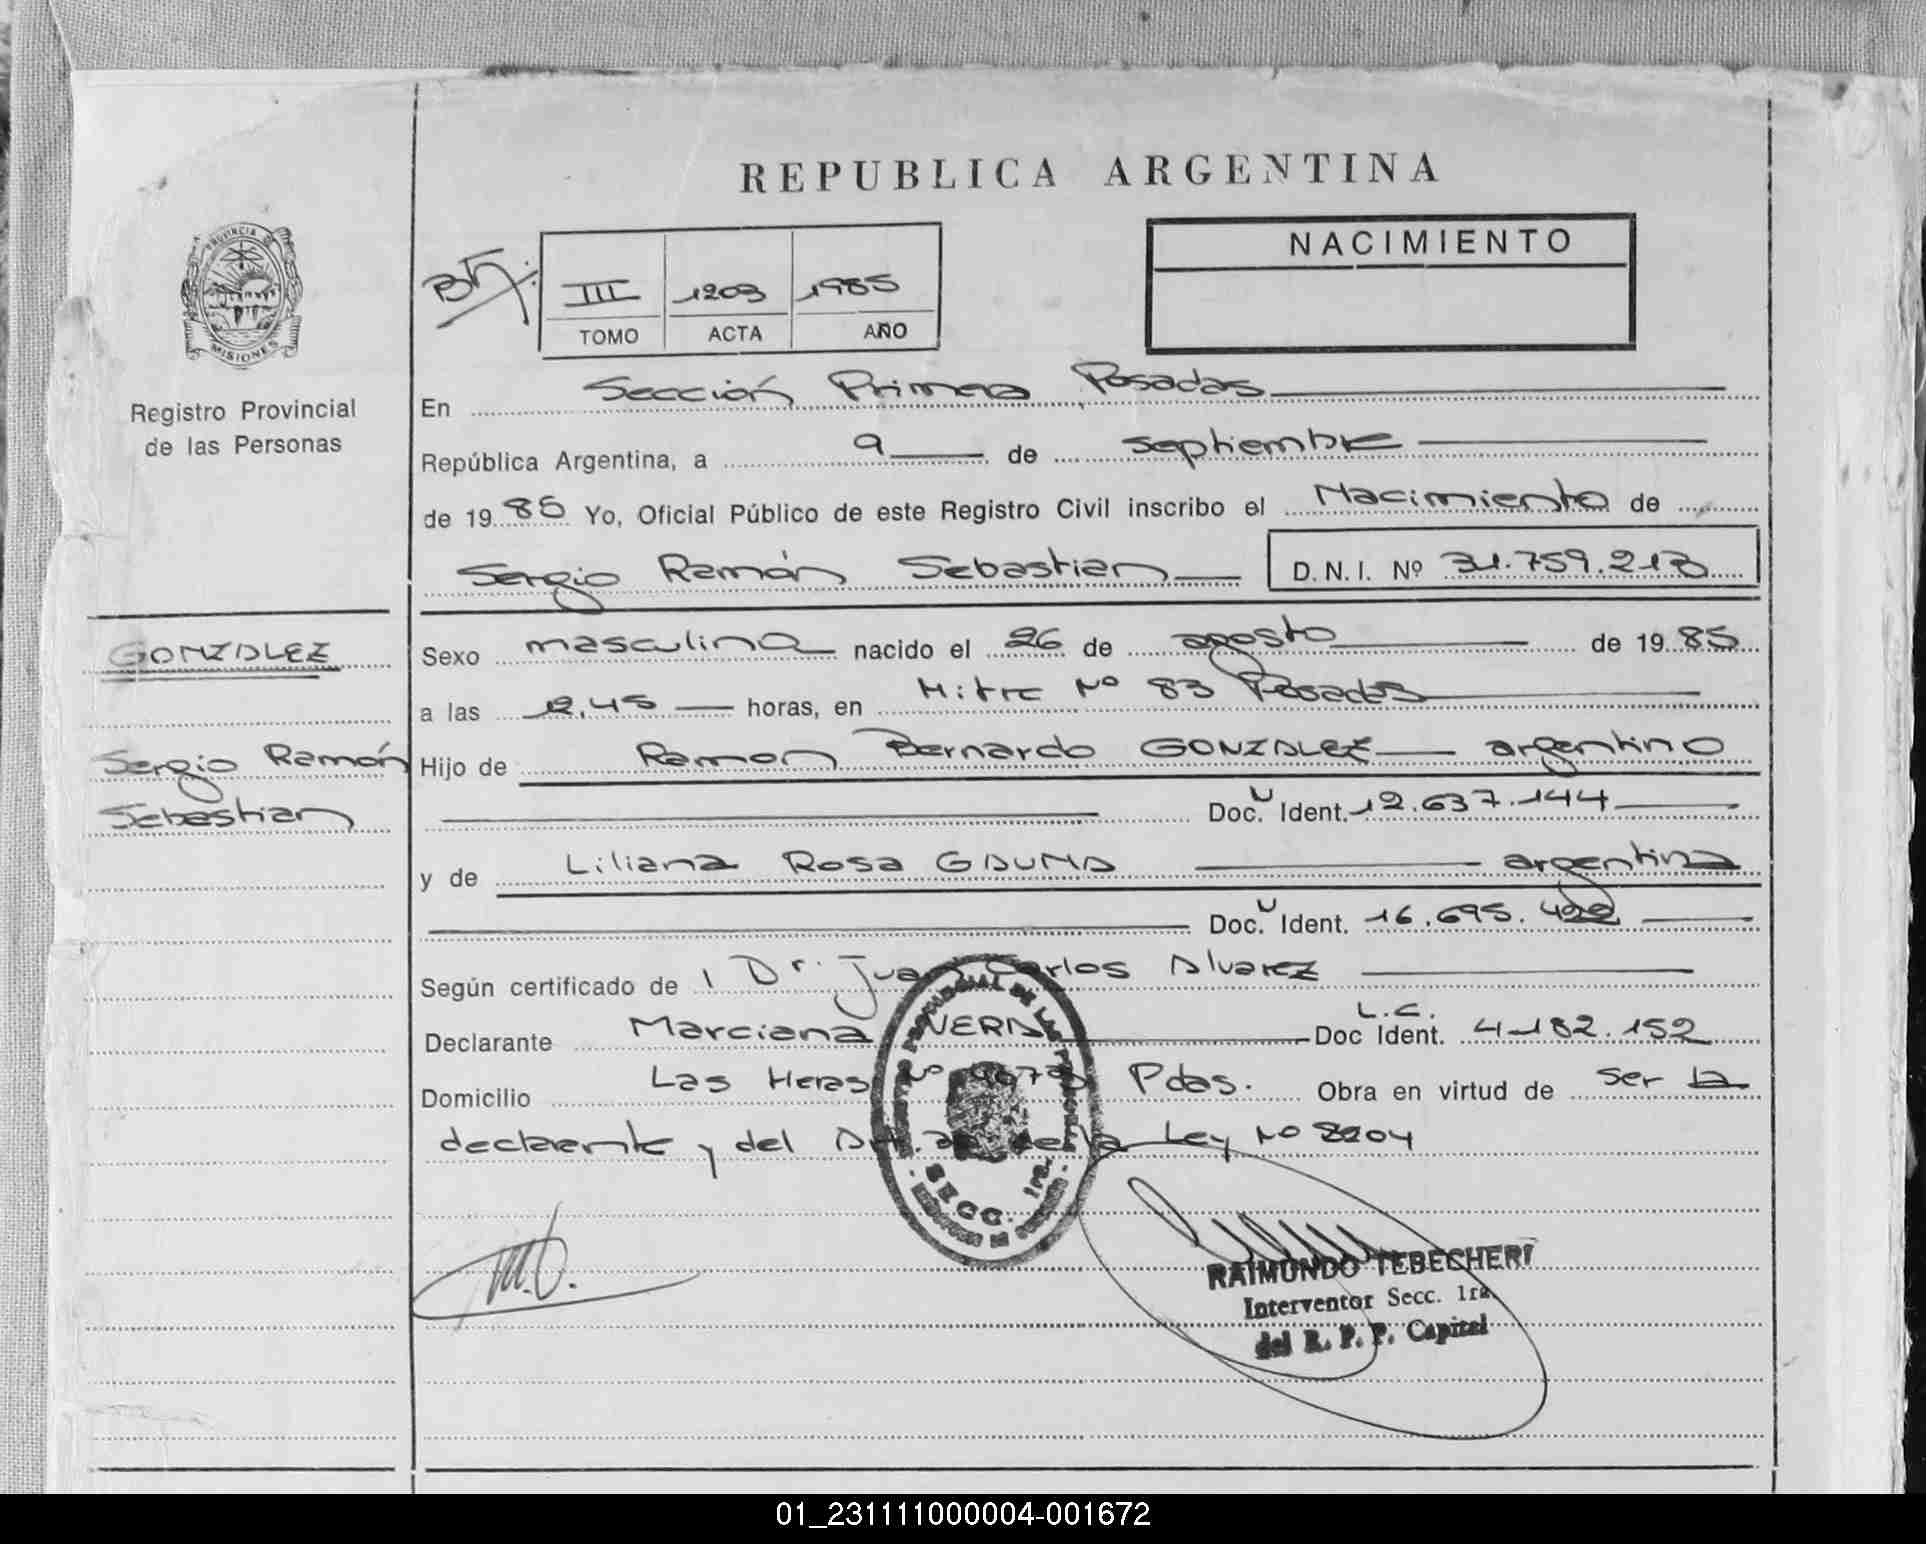 REPUBLICA ARGENTINA
PROVINCIA DE
MISIONES
Registro Provincial
de las Personas
III 1203 1985
TOMO ACTA AÑO
NACIMIENTO
En Sección Primera Posadas
República Argentina, a 9 de septiembre
de 1985 Yo, Oficial Público de este Registro Civil inscribo el Nacimiento de
Sergio Ramón Sebastian D.N.I. Nº 31.759.213
GONZALEZ
Sergio Ramón
Sebastian
Sexo masculino nacido el 26 de agosto de 1985
a las 12,45 horas, en Mitre Nº 83 Posadas
Hijo de Ramon Bernardo GONZALEZ argentino
Doc. U Ident. 12.637.144
y de Liliana Rosa GAUNA argentina
Doc. U Ident. 16.695.422
Según certificado de Dr. Juan Carlos Alvarez
Declarante Marciana VERA L.C. Doc Ident. 4.182.152
Domicilio Las Heras Nº Pdas. Obra en virtud de ser la
declarante y del Ley Nº 8204
REGISTRO PROVINCIAL DE LAS PERSONAS
SECC. 1ra.
M.V.
RAIMUNDO TEBECHERI
Interventor Secc. 1ra
del R. P. P. Capital
01_231111000004-001672